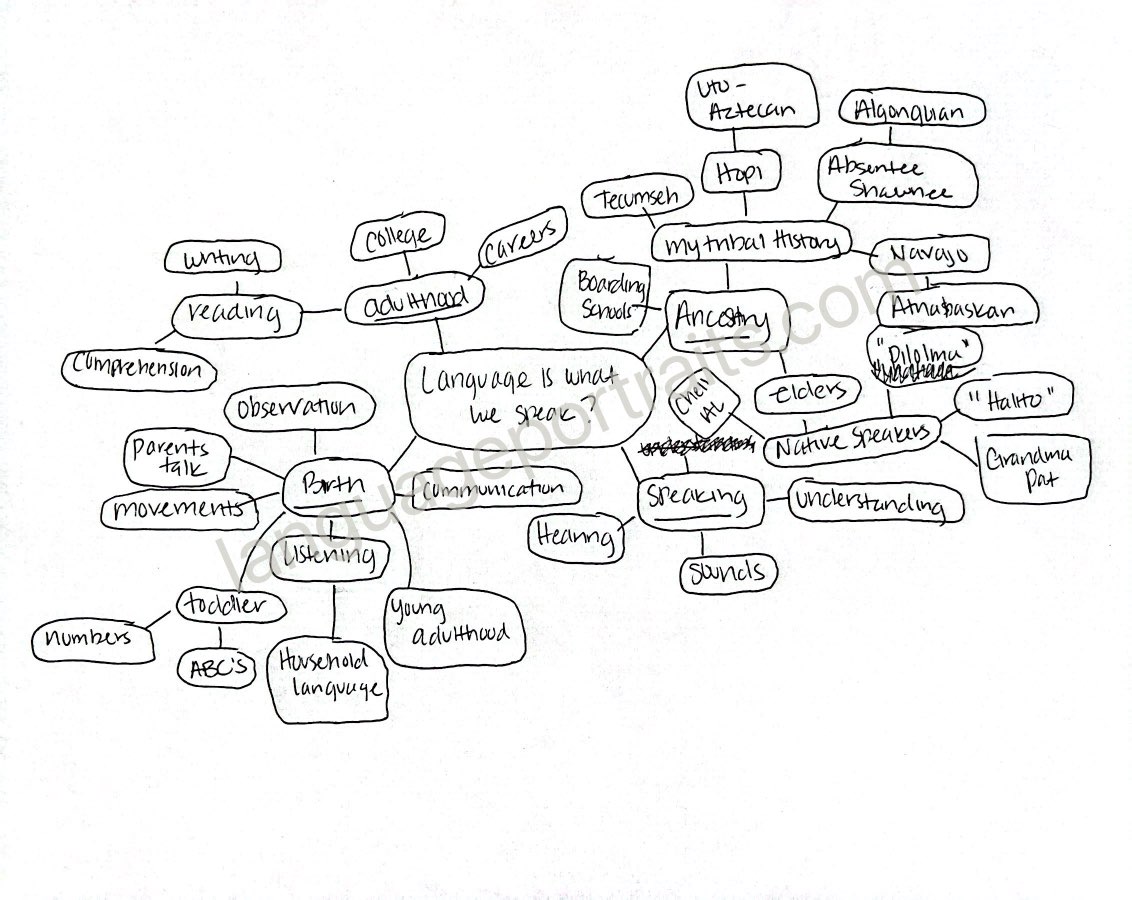 Uto-
Aztecan
Algonquian
Hopi
Absentee
Shawnee
Tecumseh
my tribal History
college
careers
writing
Navajo
Boarding
Schools
adulthood
reading
Ancestry
Athabaskan
Comprehension
Language is what
we speak?
"Dilolma"
elders
"Halito"
observation
Native Speakers
Grandma
Pat
Parents
talk
Birth
communication
Speaking
understanding
movements
Hearing
Listening
Sounds
toddler
young
adulthood
numbers
ABC's
Household
language
languageportraits.com